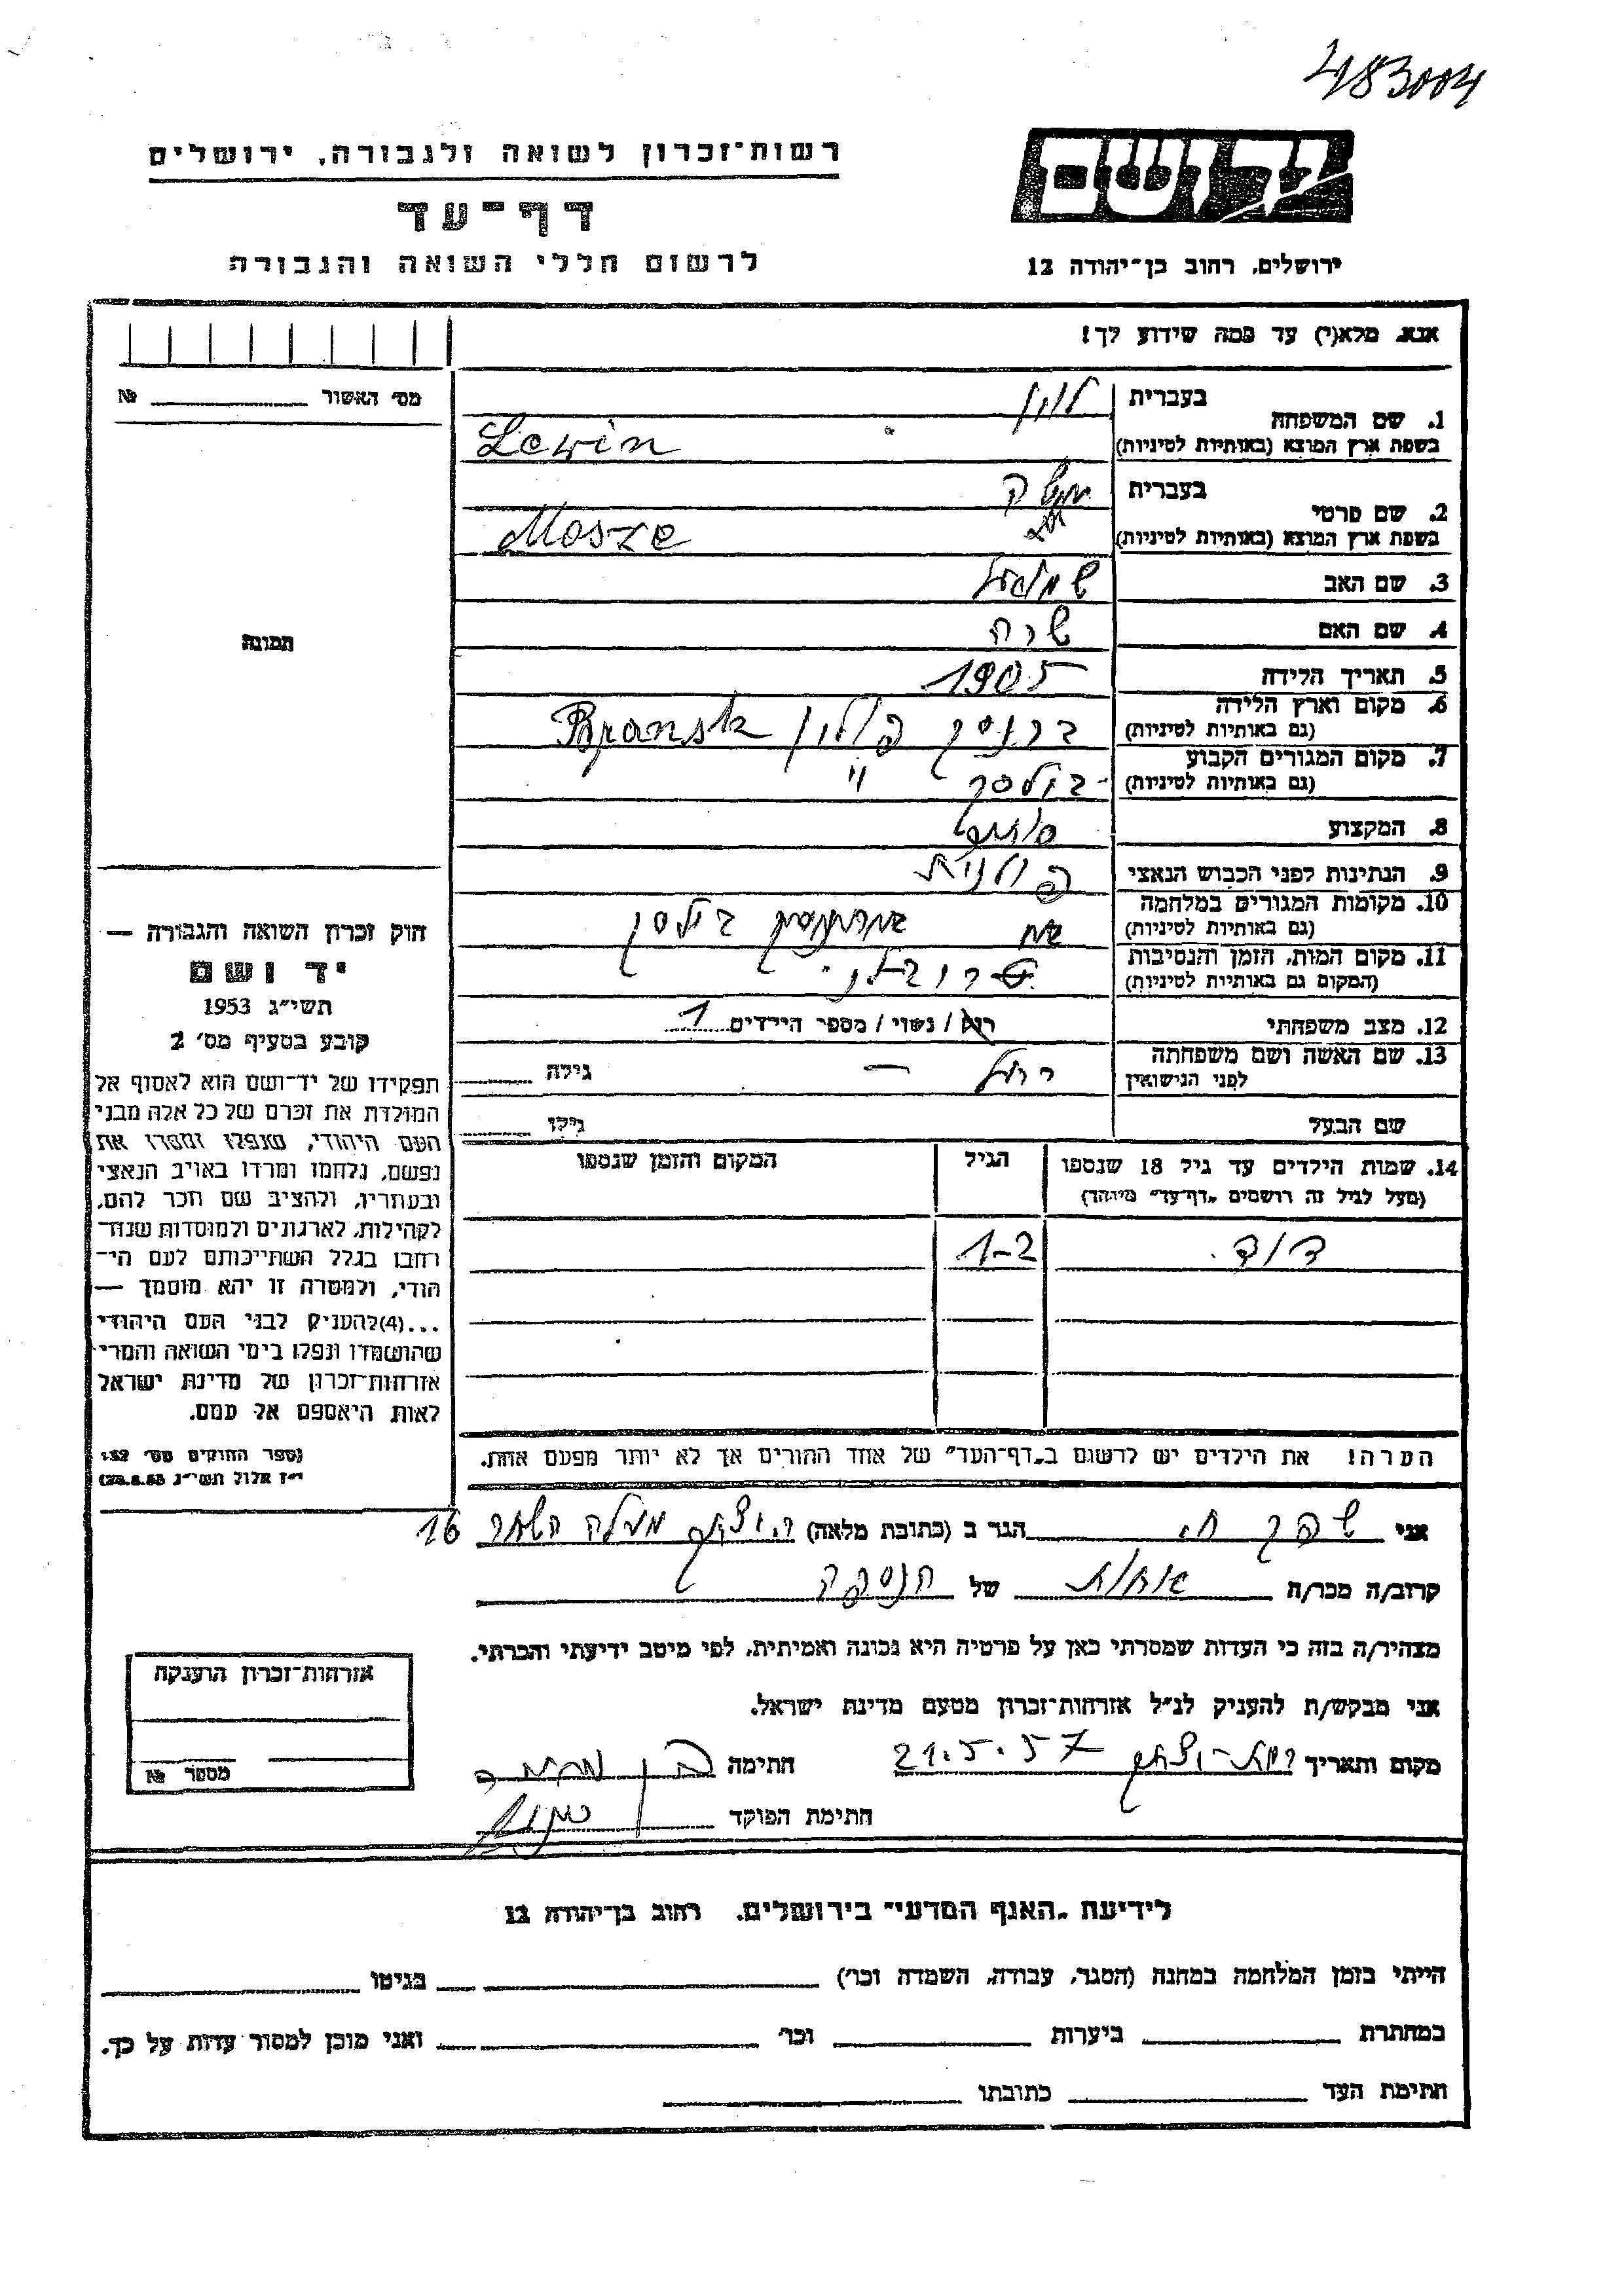 483004
רשות־זכרון לשואה ולגבורה, ירושלים
יד ושם
דף־עד
לרשום חללי השואה והגבורה
ירושלים, רחוב בן־יהודה 12
אנא, מלא(י) עד כמה שידוע לך!
מס׳ האשור № 
בעברית לוין
1. שם המשפחה
בשפת ארץ המוצא (באותיות לטיניות) Lewin
בעברית משה
2. שם פרטי
בשפת ארץ המוצא (באותיות לטיניות) Mosze
3. שם האב שמואל
4. שם האם שרה
תמונה
5. תאריך הלידה 1905
6. מקום וארץ הלידה
(גם באותיות לטיניות) ברנסק פולין Bransk
7. מקום המגורים הקבוע
(גם באותיות לטיניות) בילסק "
8. המקצוע סוחר
9. הנתינות לפני הכבוש הנאצי פולנית
10. מקומות המגורים במלחמה
(גם באותיות לטיניות) בילסק
11. מקום המות, הזמן והנסיבות
(המקום גם באותיות לטיניות)
12. מצב משפחתי רוק / נשוי / מספר הילדים 1
13. שם האשה ושם משפחתה
לפני הנישואין רחל — גילה
שם הבעל גילו
14. שמות הילדים עד גיל 18 שנספו
(מעל לגיל זה רושמים "דף־עד" מיוחד)
הגיל
המקום והזמן שנספו
דוד 1-2
הערה! את הילדים יש לרשום ב"דף־העד" של אחד ההורים אך לא יותר מפעם אחת.
חוק זכרון השואה והגבורה —
יד ושם
תשי״ג 1953
קובע בסעיף מס׳ 2
תפקידו של יד־ושם הוא לאסוף אל
המולדת את זכרם של כל אלה מבני
העם היהודי, שנפלו ומסרו את
נפשם, נלחמו ומרדו באויב הנאצי
ובעוזריו, ולהציב שם וזכר להם,
לקהילות, לארגונים ולמוסדות שנח־
רבו בגלל השתייכותם לעם הי־
הודי, ולמטרה זו יהא מוסמך —
...(4)להעניק לבני העם היהודי
שהושמדו ונפלו בימי השואה והמרי
אזרחות־זכרון של מדינת ישראל
לאות היאספם אל עמם.
(ספר החוקים מס׳ 132
י״ז אלול תשי״ג 28.8.53)
אני שפק ח. הגר ב (כתובת מלאה) ר. יצחק מעלה השחר 16
קרוב/ה מכר/ה אחות של הנספה
מצהיר/ה בזה כי העדות שמסרתי כאן על פרטיה היא נכונה ואמיתית, לפי מיטב ידיעתי והכרתי.
אני מבקש/ת להעניק לנ״ל אזרחות־זכרון מטעם מדינת ישראל.
מקום ותאריך רמת־יצחק 21.5.57 חתימה
חתימת הפוקד
אזרחות־זכרון הוענקה
מספר №
לידיעת "האגף המדעי" בירושלים, רחוב בן־יהודה 12
הייתי בזמן המלחמה במחנה (הסגר, עבודה, השמדה וכו׳) בגיטו
במחתרת ביערות וכו׳ ואני מוכן למסור עדות על כך.
חתימת העד כתובתו